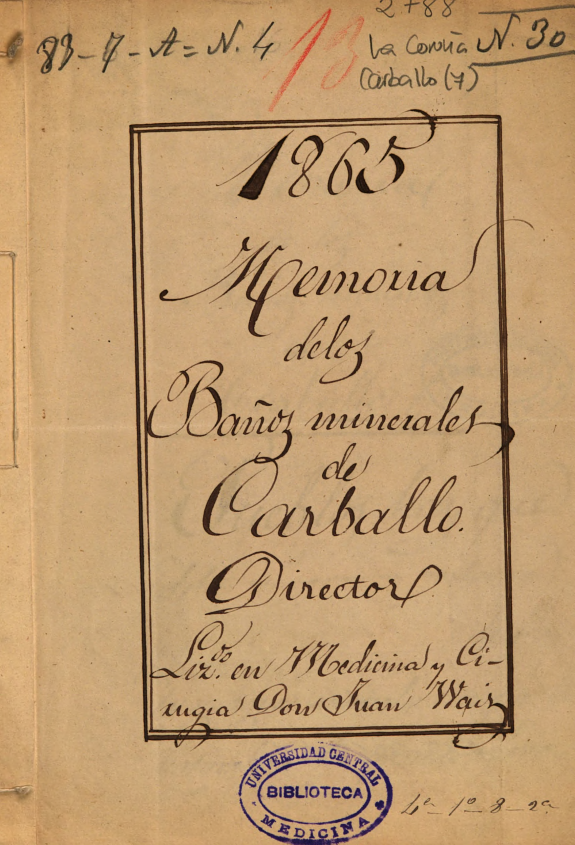 2788
83-7-A=N. 4
13
La Coruña N. 30
Carballo (7)
1865
Memoria
delos
Baños minerales
de
Carballo.
Director
Lizdo. en Medicina y Ci-
rugia Don Juan
UNIVERSIDAD CENTRAL
BIBLIOTECA
MEDICINA
4ª-1ª-8-2ª